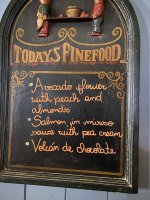 TODAY'S FINEFOOD
Avocado flower
with peach and
almonds
Salmon, in misoroso
sauce with pea cream
Volcán de chocolate